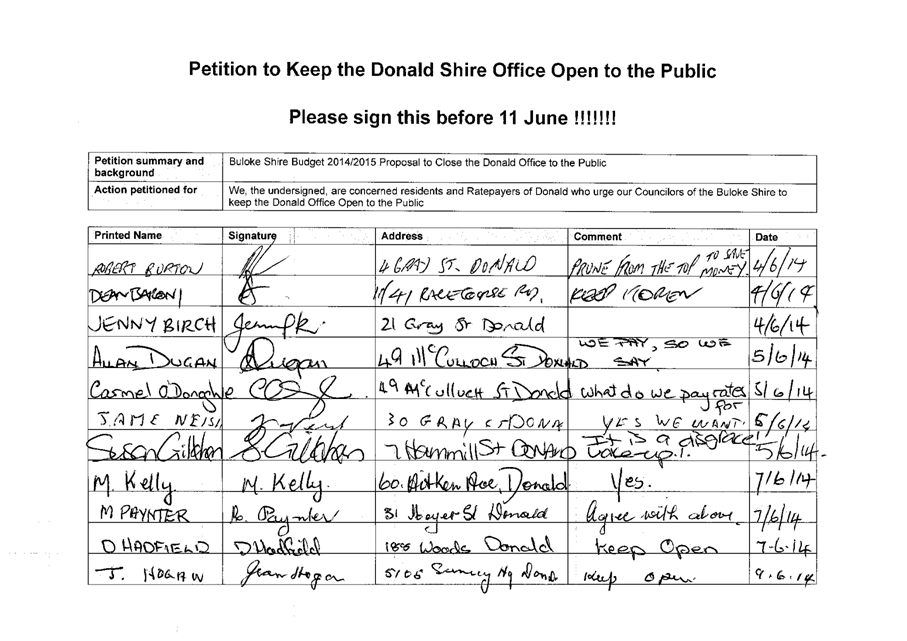 Petition to Keep the Donald Shire Office Open to the Public
Please sign this before 11 June !!!!!!!
Petition summary and background
Buloke Shire Budget 2014/2015 Proposal to Close the Donald Office to the Public
Action petitioned for
We, the undersigned, are concerned residents and Ratepayers of Donald who urge our Councilors of the Buloke Shire to
keep the Donald Office Open to the Public
Printed Name Signature Address Comment Date
ROBERT BURTON 4 GRAY ST. DONALD PRUNE FROM THE TOP TO SAVE MONEY. 4/6/14
DEAN BARONI 11/41 RACECOURSE RD, KEEP 4/6/14
JENNY BIRCH 21 Gray St Donald 4/6/14
ALLAN DUGAN Dugan 49 McCULLOCH ST DONALD WE PAY, SO WE SAY 5/6/14
Carmel O'Donoghue 49 McCulloch St Donald what do we pay rates for 5/6/14
30 GRAY ST DONA YES WE WANT. 5/6/14
Susan Gillahan S Gillahan 7 Hammill St DONALD It is a disgrace! wake-up. 5/6/14.
M. Kelly M. Kelly. 60. Aitken Ave, Donald Yes. 7/6/14
M PAYNTER Paynter 31 Meyer St Donald Agree with above. 7/6/14
D HADFIELD D Hadfield Woods Donald Keep Open 7-6-14
J. HOGAN Jean Hogan Keep open 9.6.14